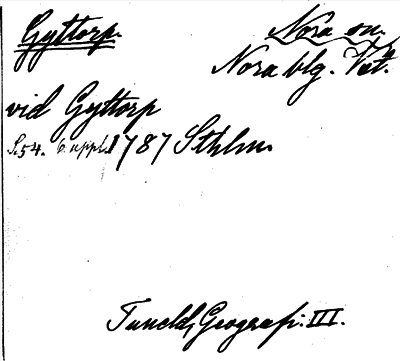 Gyttorp.
Nora sn.
Nora blg. Vstm.
vid Gyttorp
S. 54. 6. uppl. 1787 Sthlm.
Tuneld, Geografi. III.